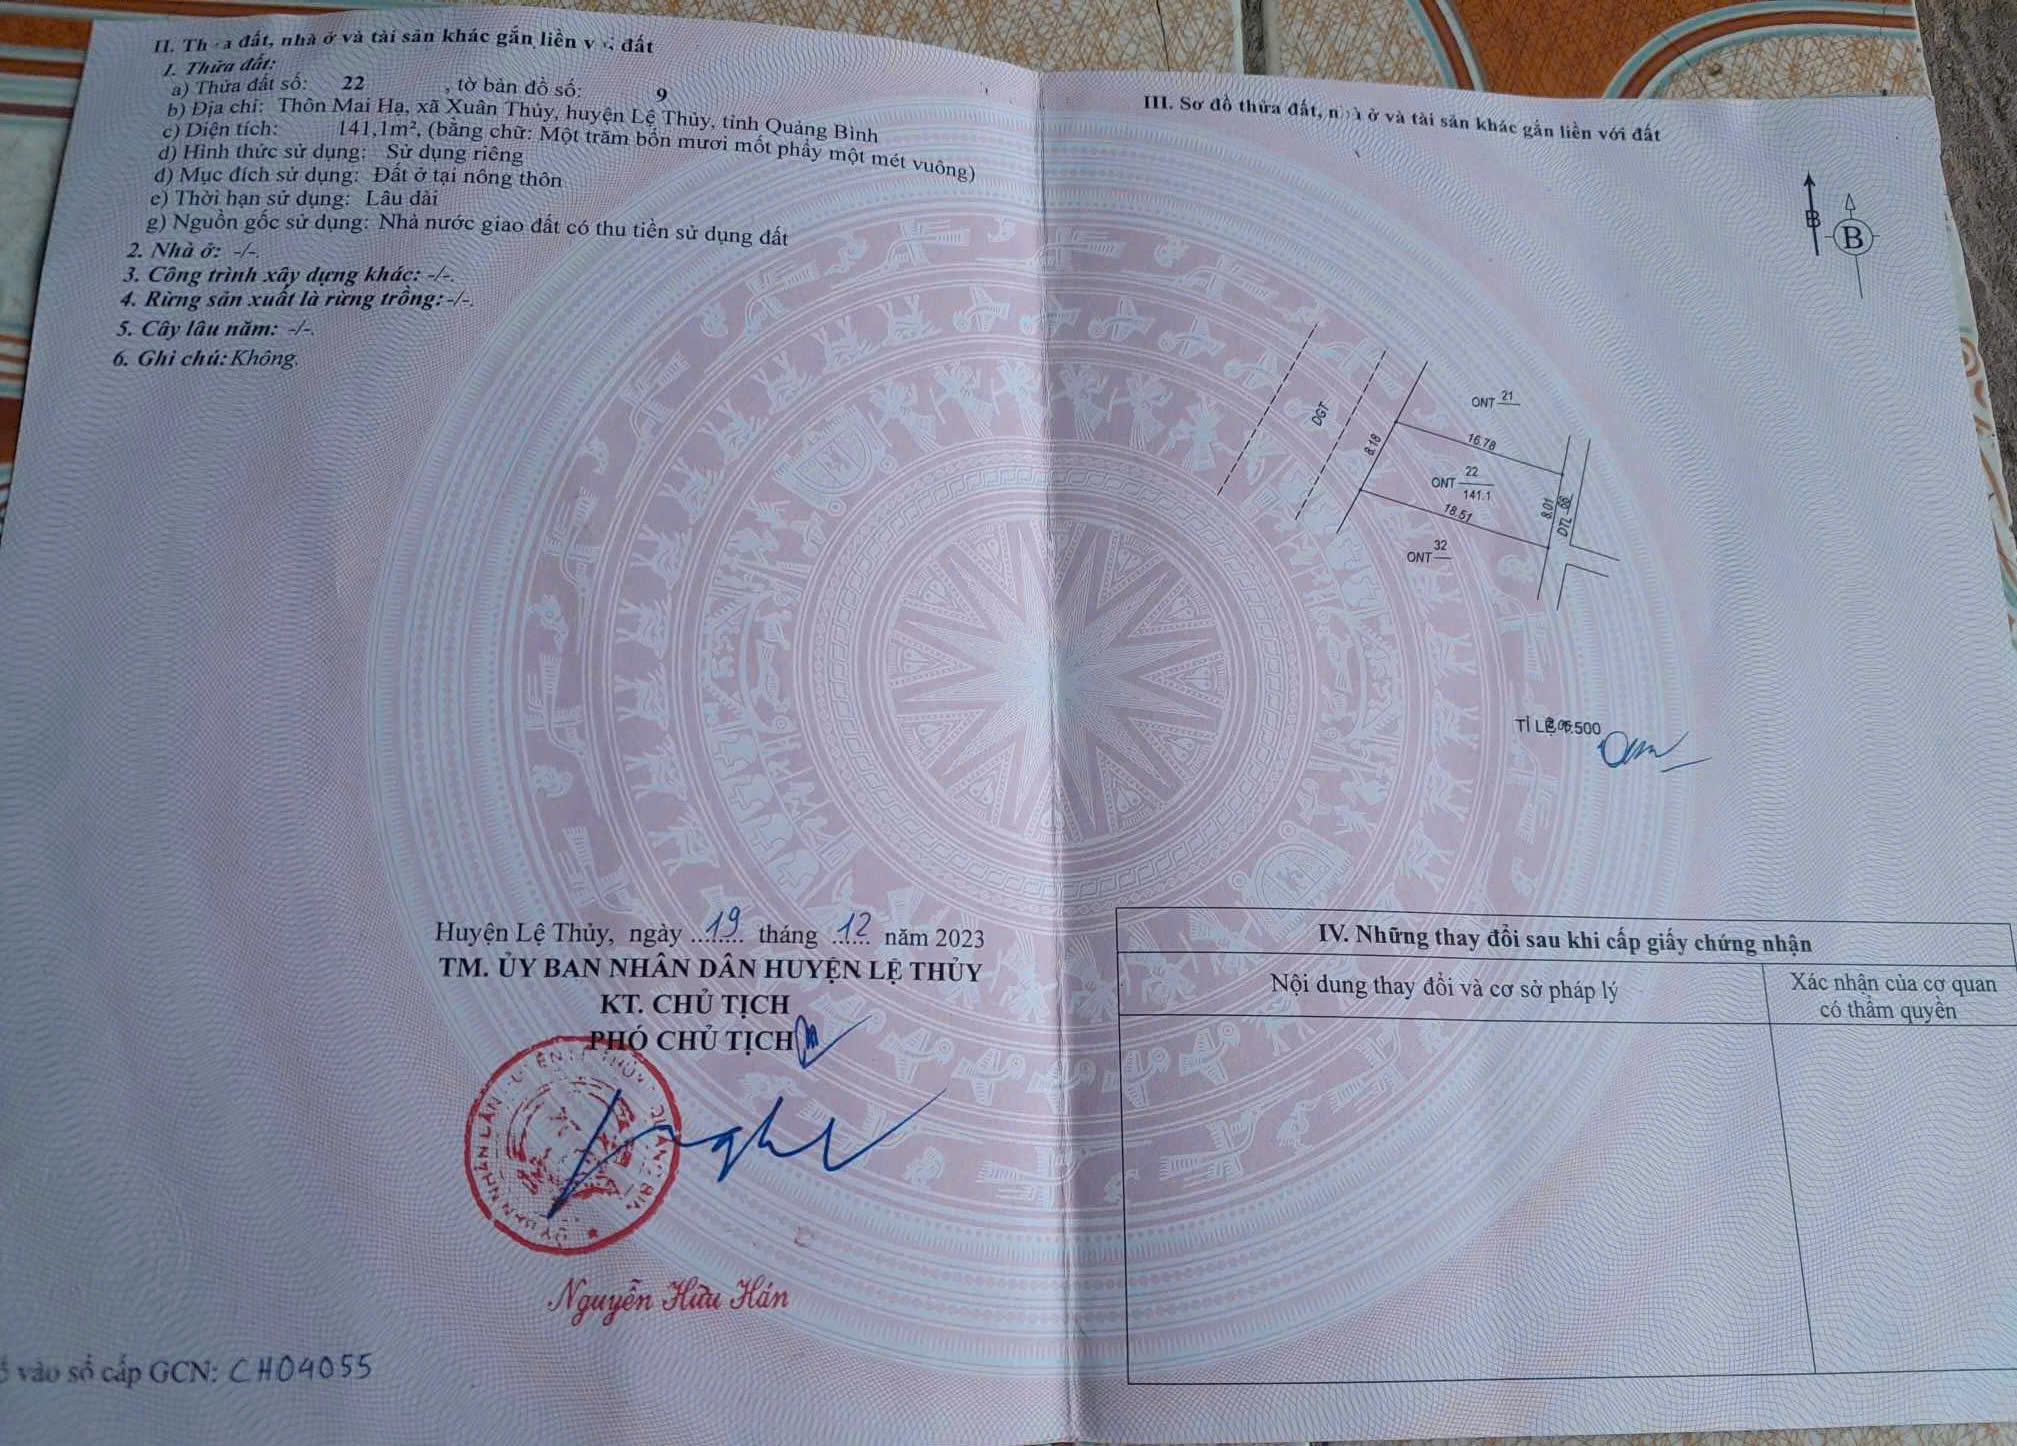 II. Thửa đất, nhà ở và tài sản khác gắn liền với đất
1. Thửa đất:
a) Thửa đất số: 22 , tờ bản đồ số: 9
b) Địa chỉ: Thôn Mai Hạ, xã Xuân Thủy, huyện Lệ Thủy, tỉnh Quảng Bình
c) Diện tích: 141,1m², (bằng chữ: Một trăm bốn mươi mốt phẩy một mét vuông)
d) Hình thức sử dụng: Sử dụng riêng
đ) Mục đích sử dụng: Đất ở tại nông thôn
e) Thời hạn sử dụng: Lâu dài
g) Nguồn gốc sử dụng: Nhà nước giao đất có thu tiền sử dụng đất
2. Nhà ở: -/-.
3. Công trình xây dựng khác: -/-.
4. Rừng sản xuất là rừng trồng: -/-.
5. Cây lâu năm: -/-.
6. Ghi chú: Không.
Huyện Lệ Thủy, ngày 19 tháng 12 năm 2023
TM. ỦY BAN NHÂN DÂN HUYỆN LỆ THỦY
KT. CHỦ TỊCH
PHÓ CHỦ TỊCH
Nguyễn Hữu Hán
vào sổ cấp GCN: CH04055
III. Sơ đồ thửa đất, nhà ở và tài sản khác gắn liền với đất
B
B
DGT
ONT 21
8.18
16.78
ONT 22
141.1
18.51
8.01
DTL
ONT 32
TỈ LỆ
500
IV. Những thay đổi sau khi cấp giấy chứng nhận
Nội dung thay đổi và cơ sở pháp lý
Xác nhận của cơ quan
có thẩm quyền